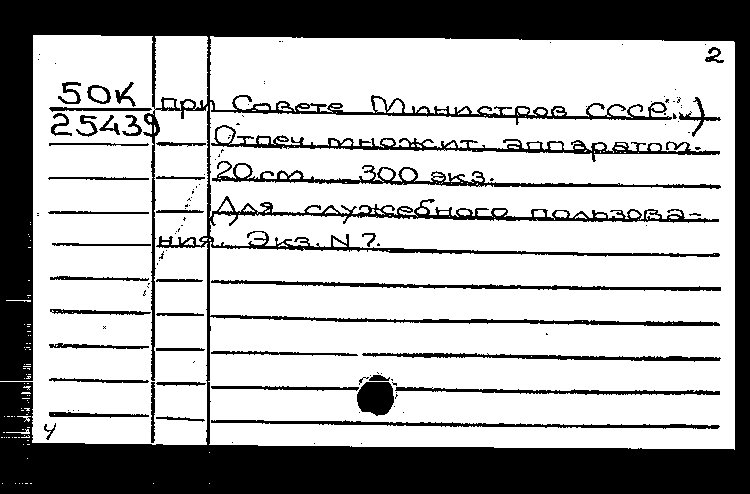 2
50К при Совете Министров СССР.)
25439 Отпеч. множит. аппаратом.
20 см. 300 экз.
Для служебного пользова-
ния. Экз. N 7.
4